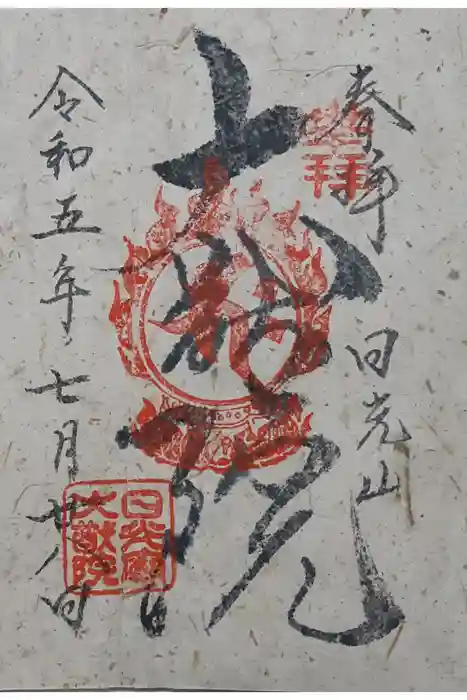 奉拝 日光山
奉拝
大猷院
日光山
大猷院
令和五年七月廿八日